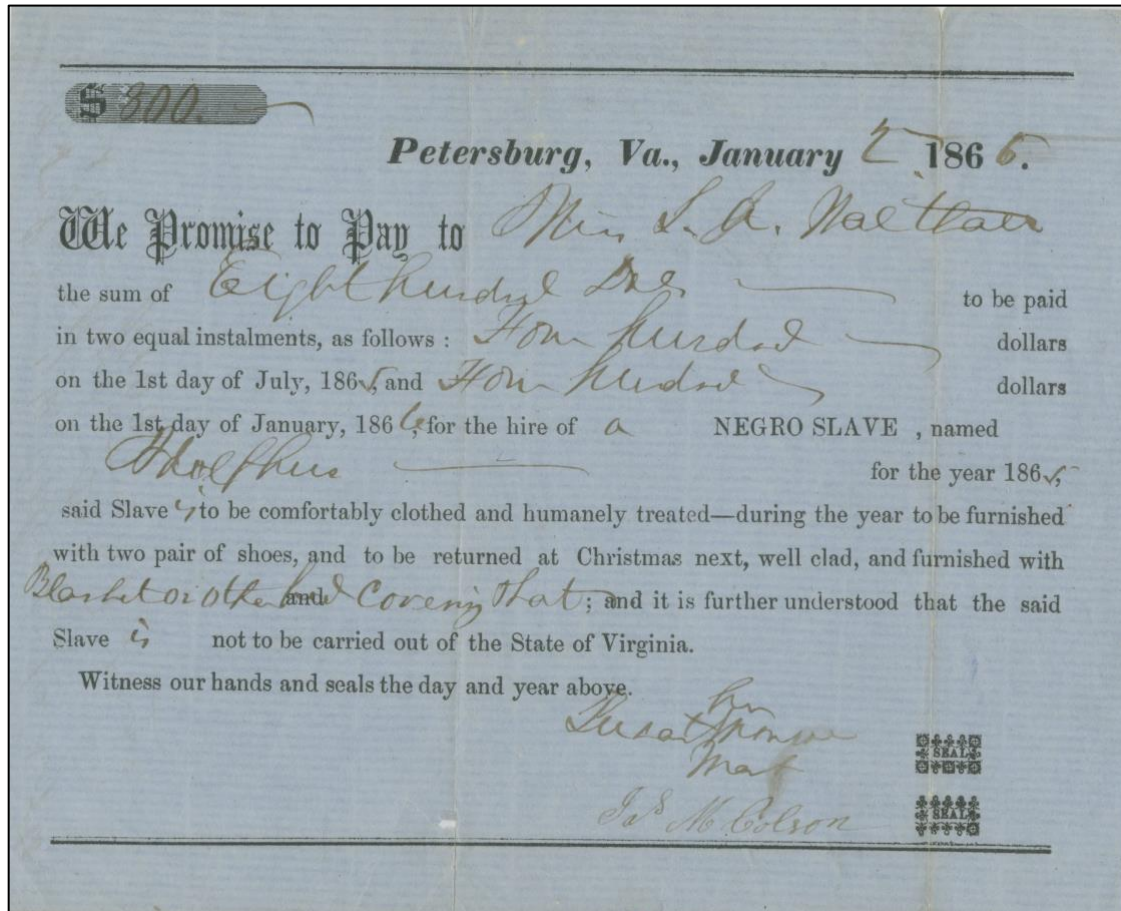 $ 800.
Petersburg, Va., January 2 1865.
We Promise to Pay to Miss S. A. Walthall
the sum of Eight hundred Dols to be paid
in two equal instalments, as follows : Four hundred dollars
on the 1st day of July, 1865, and Four hundred dollars
on the 1st day of January, 1866, for the hire of a NEGRO SLAVE , named
Adolphus for the year 1865,
said Slave is to be comfortably clothed and humanely treated—during the year to be furnished
with two pair of shoes, and to be returned at Christmas next, well clad, and furnished with
Blanket or other and Covering & hat ; and it is further understood that the said
Slave is not to be carried out of the State of Virginia.
Witness our hands and seals the day and year above.
his
x
mark
SEAL
Jas M. Colson
SEAL